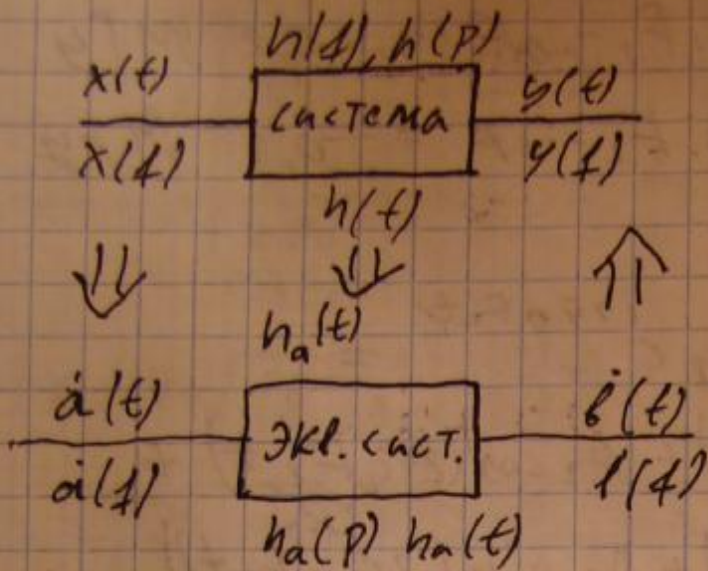 h(f), h(p)
x(t) система y(t)
x(f) y(f)
h(t)
hₐ(t)
ȧ(t) экв. сист. ḃ(t)
ȧ(f) ḃ(f)
hₐ(p) hₐ(t)